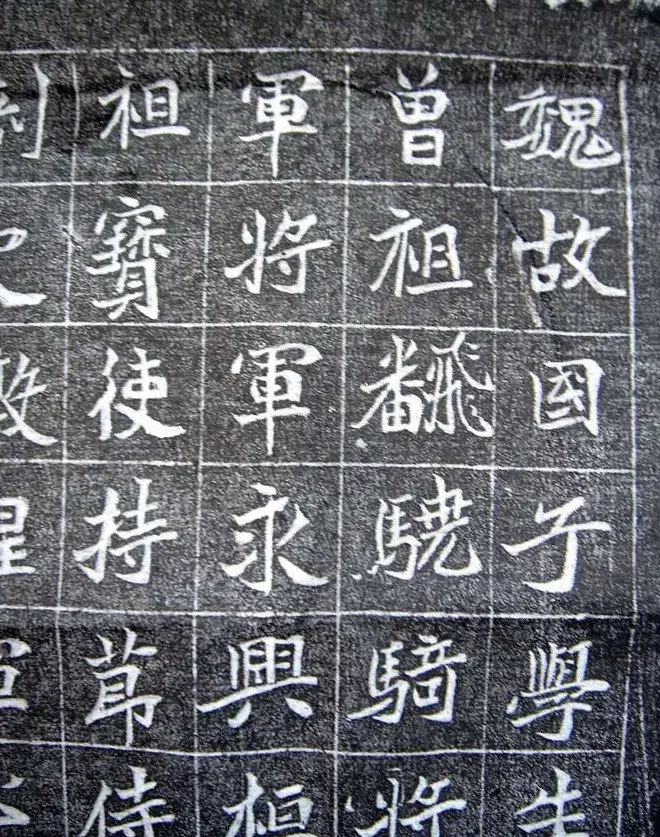 魏故國子學生
曾祖飜驍騎將
軍將軍永興桓
祖寶使持節侍